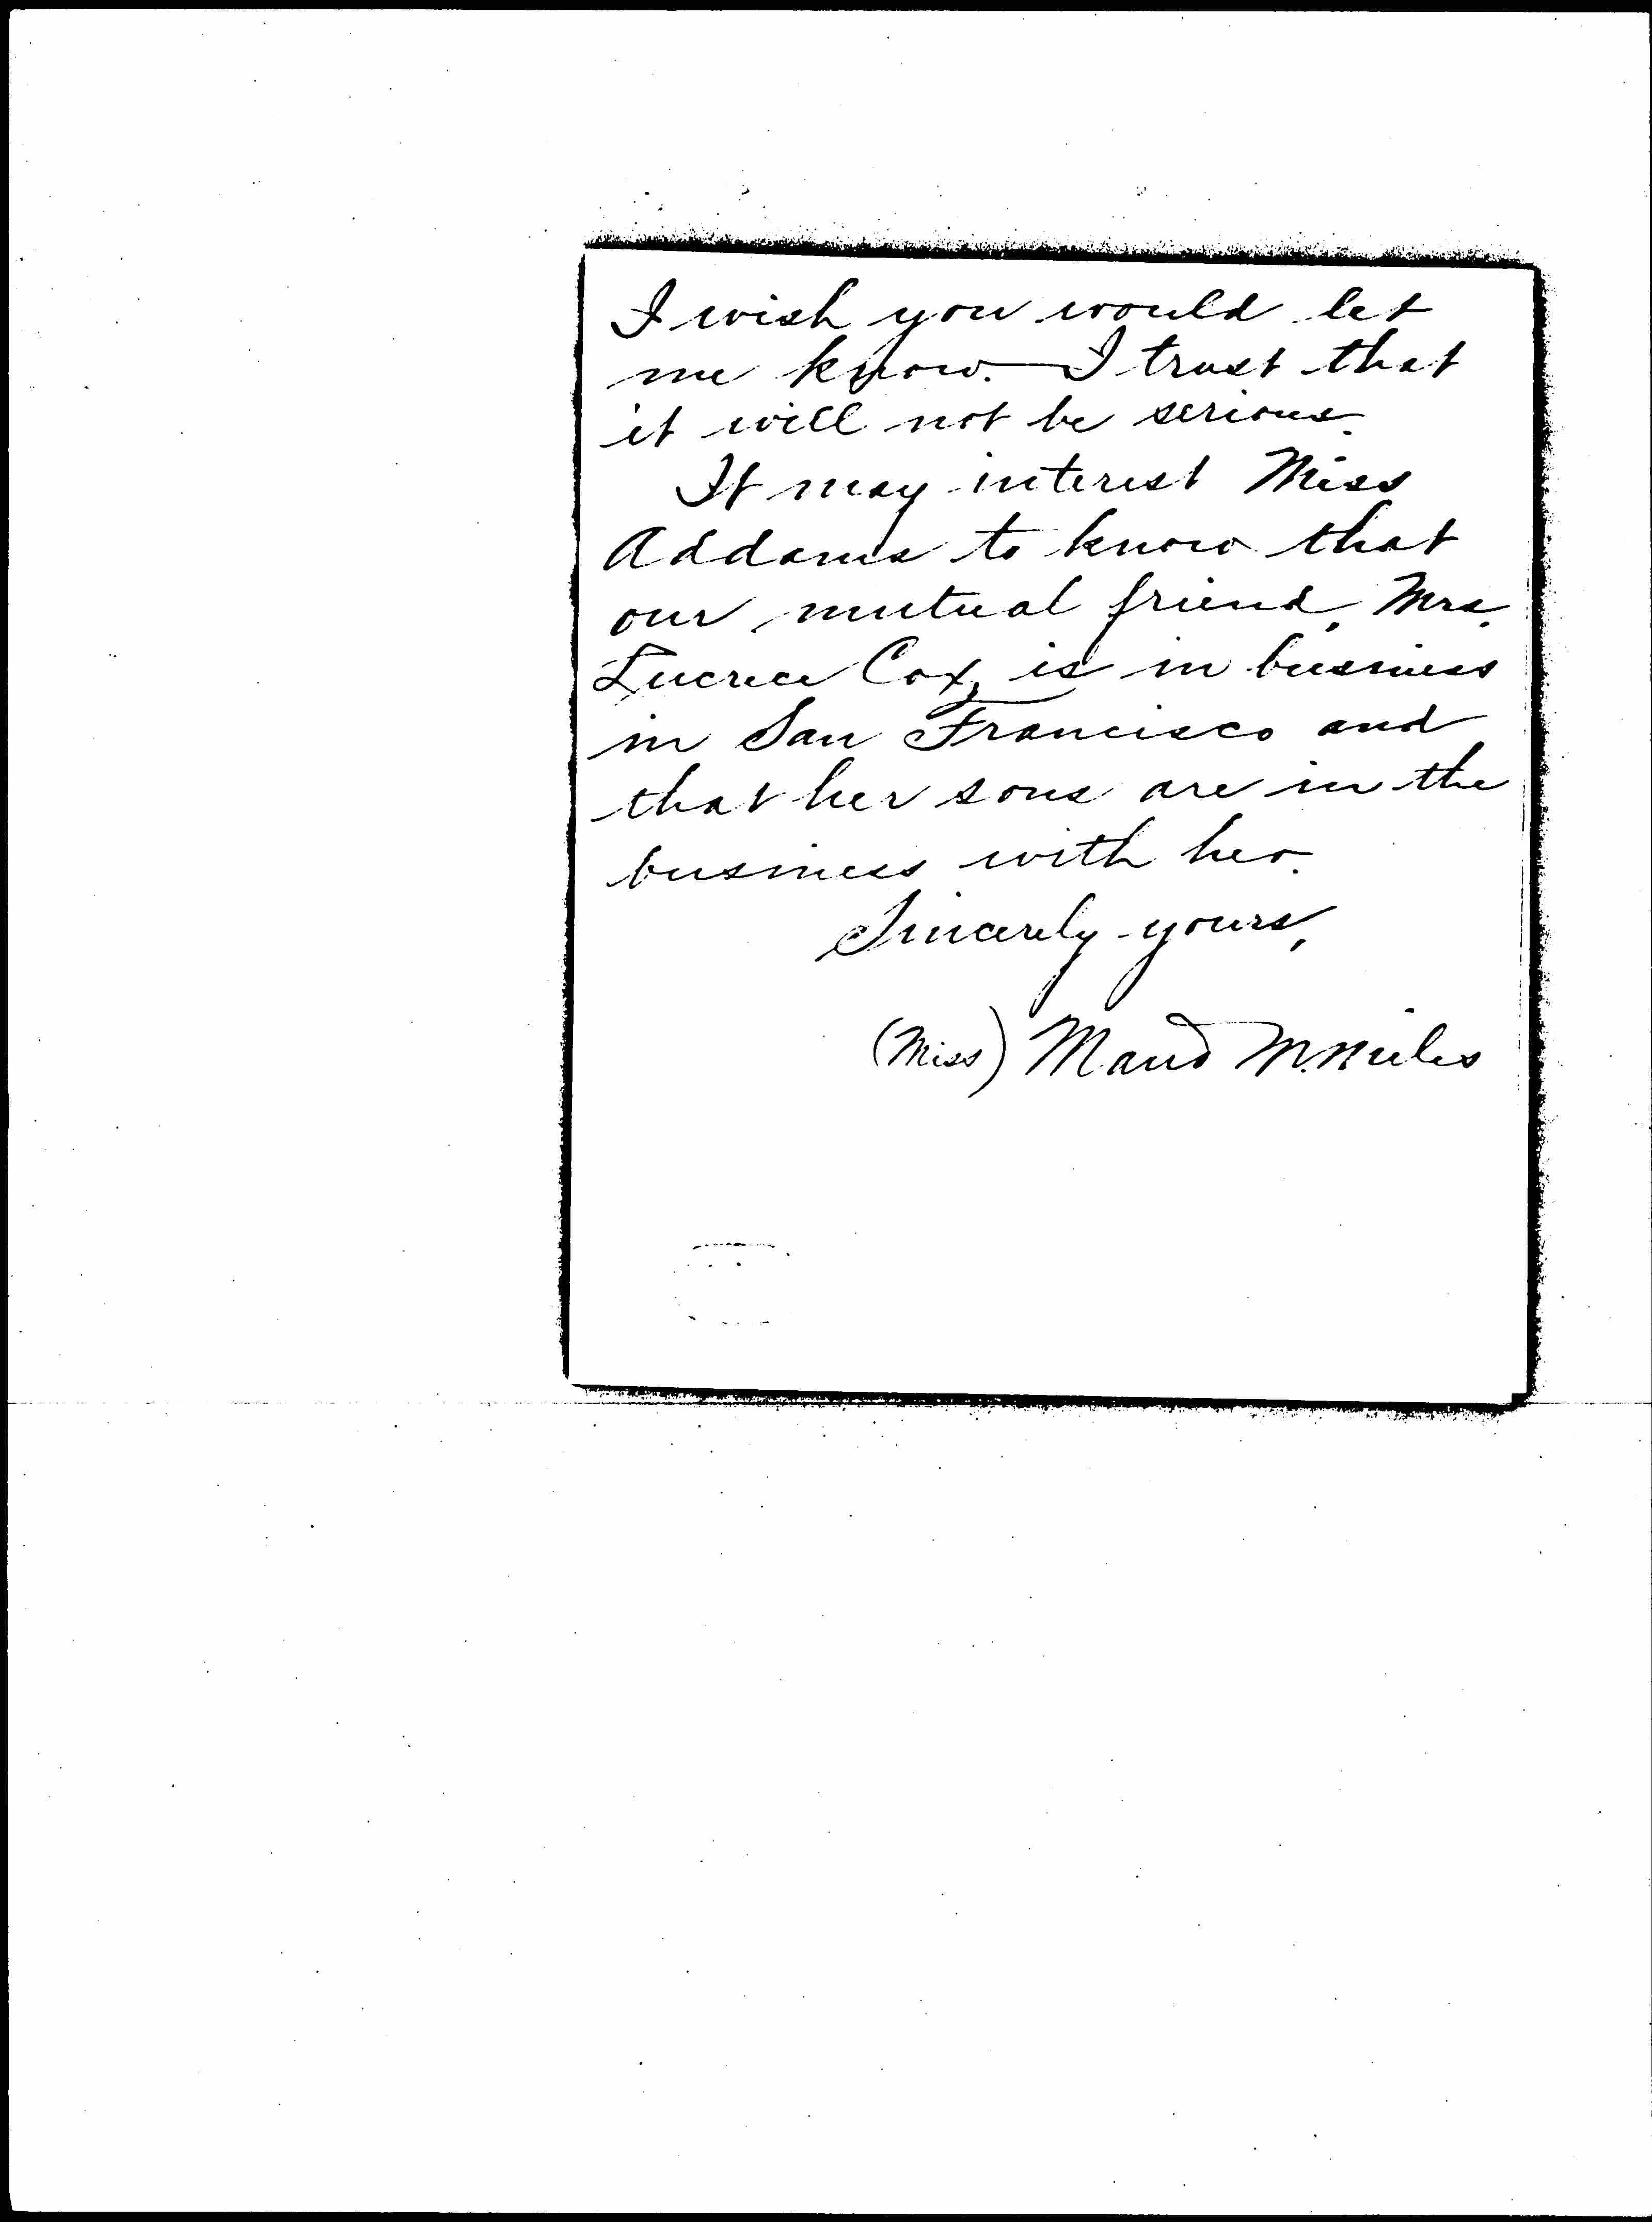 I wish you would let
me know. I trust that
it will not be serious.
It may interest Miss
Addams to know that
our mutual friend, Mrs.
Lucrece Cox, is in business
in San Francisco and
that her sons are in the
business with her.
Sincerely yours,
(Miss) Maud M. Miles